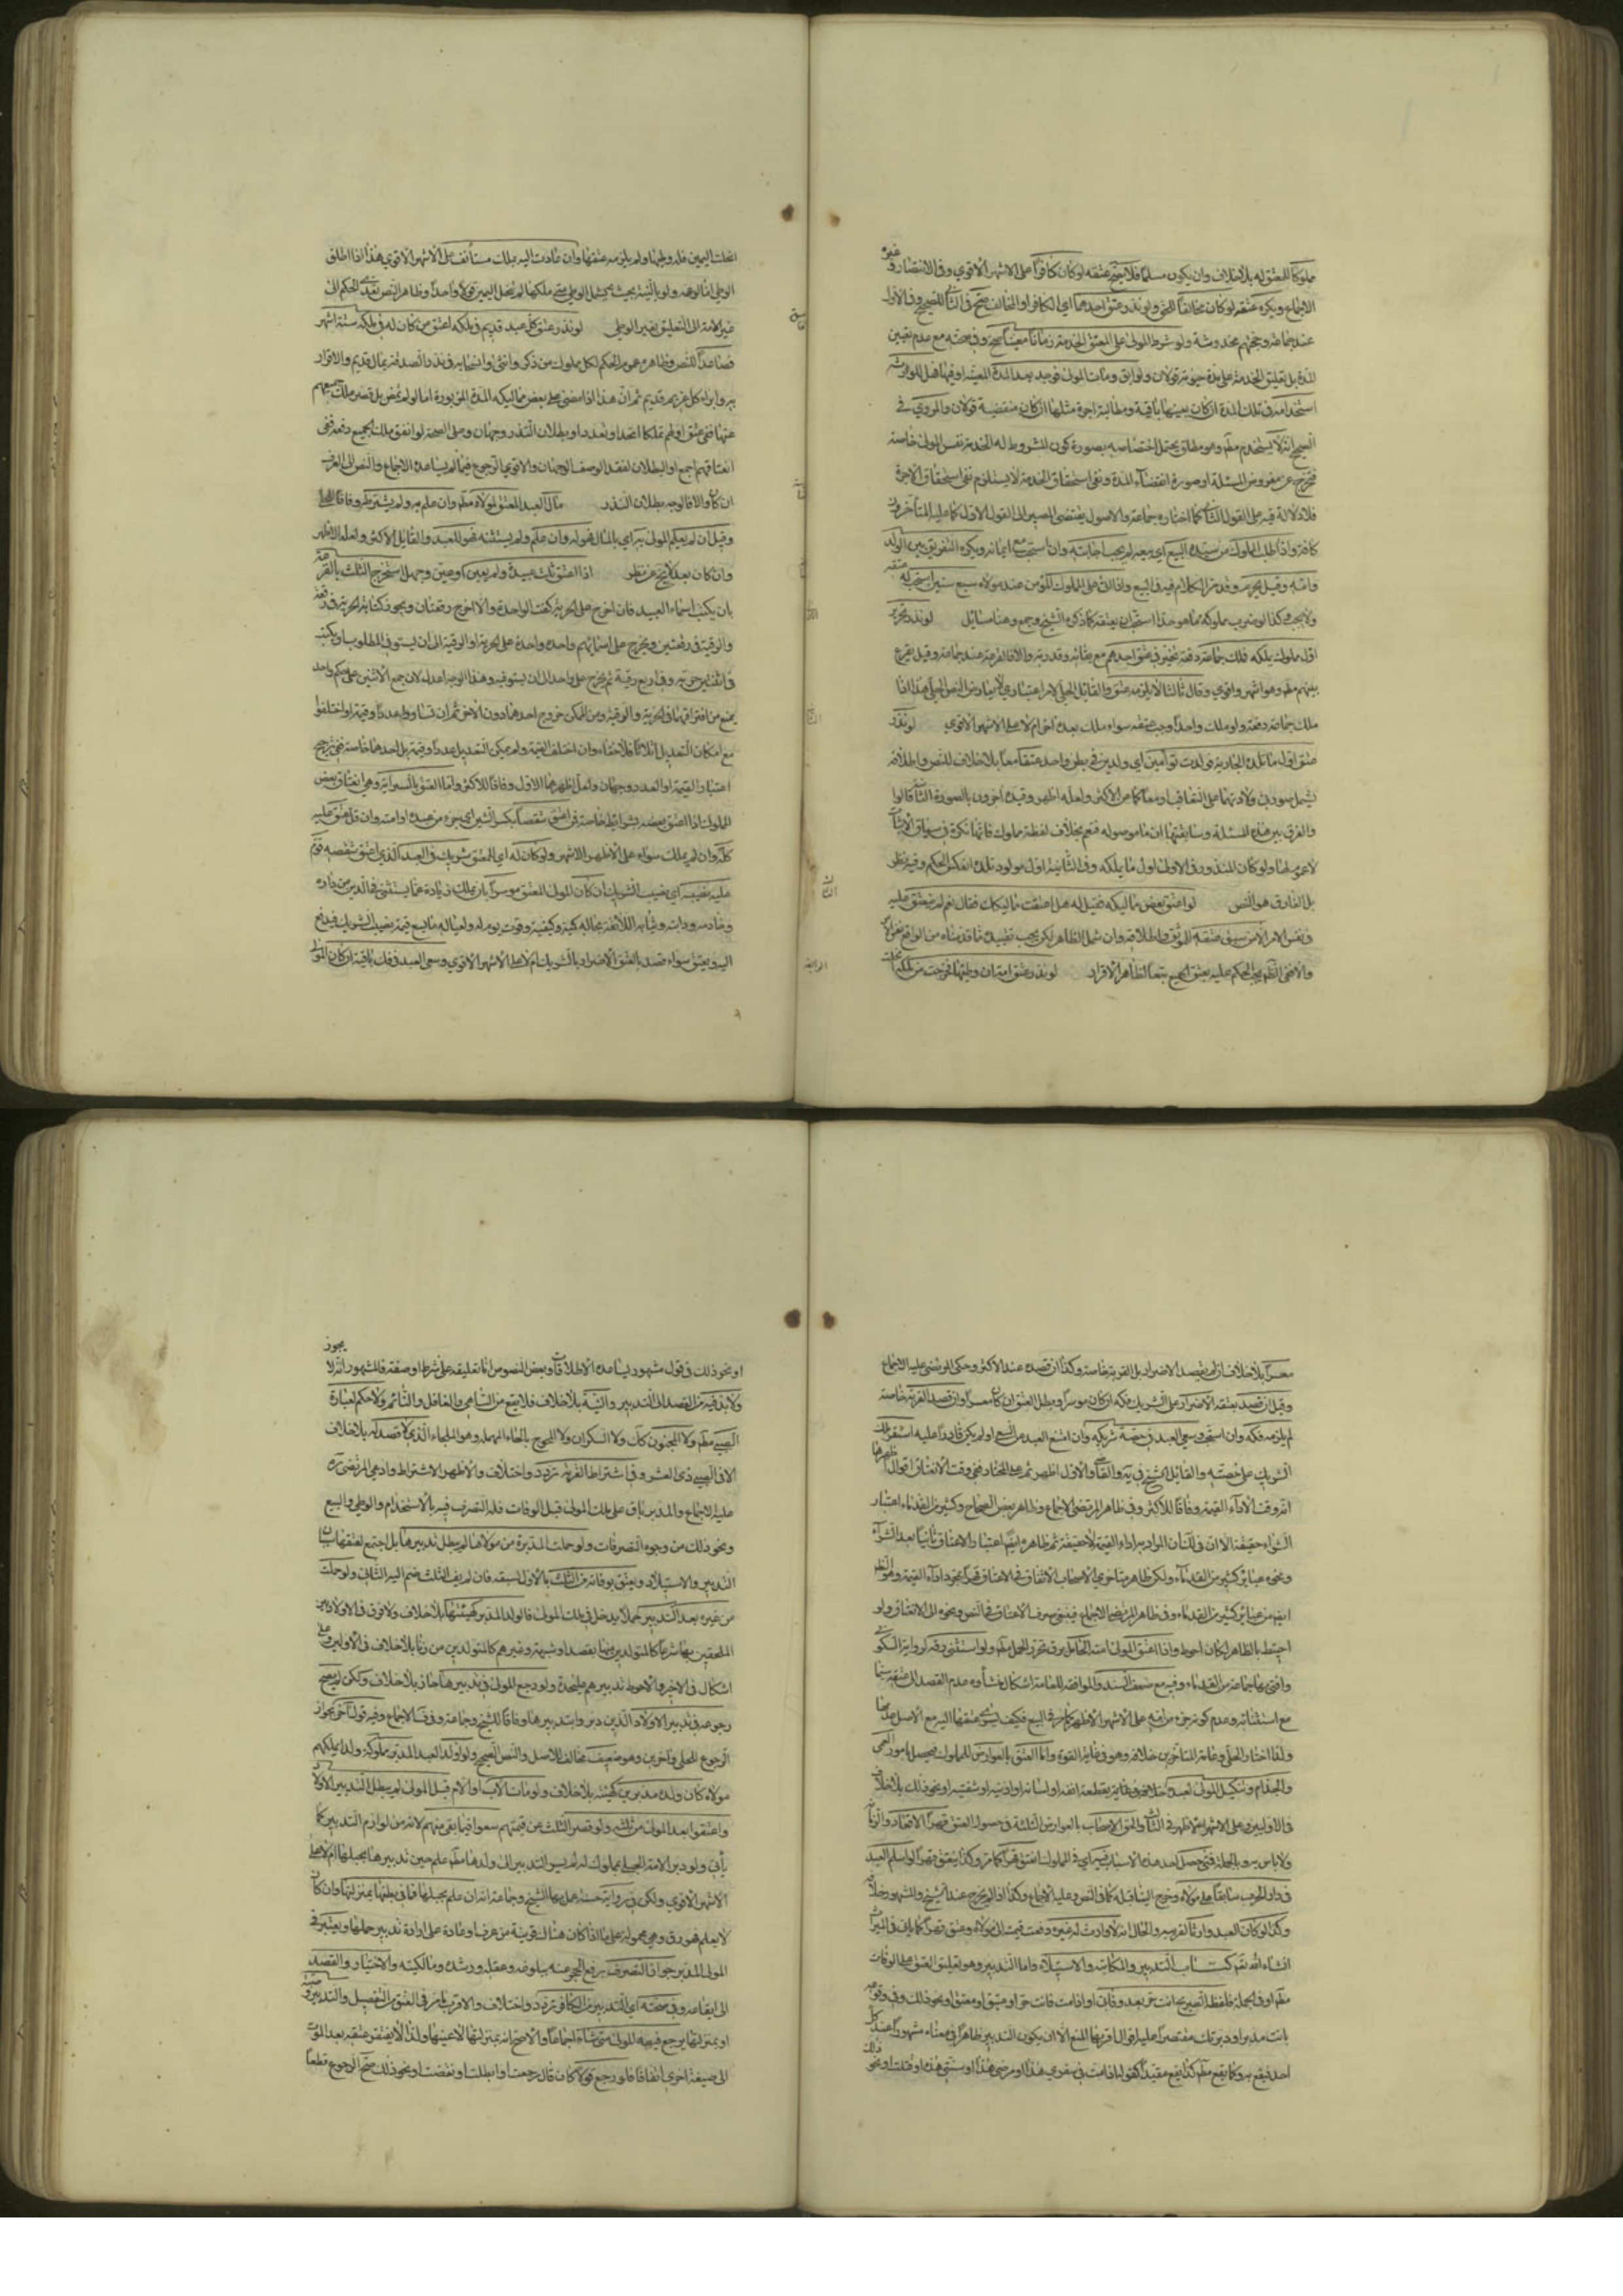 مملوكا للمعتق له بلا خلاف وان يكون مسلما فلا يصح عتقه لو كان كافرا على الاشهر الاقوى وفى الانتصار وغيره
الاجماع ويكره عتقه لو كان مخالفا للحق ولو نذر عتق احدهما اى الكافر او المخالف صح فى الثانى للصحيح وفى الاول
عند جماعة وحجتهم مخدوشة ولو شرط المولى على المعتق الخدمة زمانا معينا صح وفى صحته مع عدم تعيين
المدة بل تعليق الخدمة على مدة حيوته قولان ولو ابق ومات المولى فوجد بعد المدة المعينة او فيها فهل للوارث
استخدامه فى تلك المدة ان كان بعينها باقية ومطالبة اجرة مثلها ان كان منقضية قولان والمروى فى
الصحيح انه لا يستخدم مطم وهو مطلق يحتمل اختصاصه بصورة كون المشروط له الخدمة نفس المولى خاصة
فيخرج عن مفروض المسئلة او صورة انقضاء المدة ونفى استحقاق الخدمة لا يستلزم نفى استحقاق الاجرة
فلا دلالة فيه على القول الثانى كما اختاره جماعة والاصول يقتضى المصير الى القول الاول كما عليه المتأخرون
كافة واذا طلب المملوك من سيده البيع اى بيعه لم يجب اجابته وان استحب مع ايمانه ويكره التفريق بين الولد
وامه وقيل يحرم وقد مر الكلام فيه فى البيع واذا اتى على المملوك المؤمن عند مولاه سبع سنين استحب له عتقه
ولا يجب وكذا لو ضرب مملوكه مما هو حد استحب ان يعتقه كما ذكره الشيخ وجمع وهنا مسائل لو نذر تحرير
اول مملوك يملكه فملك جماعة دفعة تخير فى عتق احدهم مع بقائه وقدرته والا فالقرعة عند جماعة وقيل يقرع
بينهم مطم وهو اشهر واقوى وقال ثالث لا يلزمه عتق والقائل الحلى لامر اعتبارى لا يعارض النص الجلى هذا اذا
ملك جماعة دفعة ولو ملك واحدا وجب عتقه سواء ملك بعده آخر ام لا على الاشهر الاقوى لو نذر
عتق اول ما تلده الجارية فولدت توأمين اى ولدين فى بطن واحد عتقا معا بلا خلاف للنص واطلاقه
يشمل صورتى ولادتهما على التعاقب او معا كما عن الاكثر ولعله اظهر وقيده آخرون بالصورة الثانية قالوا
والفرق بين هذه المسئلة وسابقتها ان ما موصولة فتعم بخلاف لفظة مملوك فانها نكرة فى سياق الاثبات
لا عموم لها ولو كان المنذور فى الاولى اول ما يملكه وفى الثانية اول مولود تلده انعكس الحكم وفيه نظر
بل الفارق هو النص لو اعتق بعض مماليكه فقيل له هل اعتقت مماليكك فقال نعم لم ينعتق عليه
وفى نفس الامر الا من سبق عتقه للموثق واطلاقه وان شمل الظاهر لكن يجب تقييده بما قدمناه من الواقع نفس الامر
والا ففى الظاهر يجب الحكم عليه بعتق الجميع تبعا لظاهر الاقرار لو نذر عتق امته ان وطئها فخرجت من ملكه
انحلت اليمين فله وطيها ولم يلزمه عتقها وان عادت اليه بملك مستأنف على الاشهر الاقوى هذا اذا اطلق
الوطى اما لو عمه ولو بالنية بحيث يشمل الوطى متى ملكها لم تنحل اليمين قولا واحدا وظاهر النص تعدى الحكم الى
غير الامة الى التعليق بغير الوطى لو نذر عتق كل عبد قديم فى ملكه اعتق من كان له فى ملكه ستة اشهر
فصاعدا للنص وظاهره عموم الحكم لكل مملوك من ذكر وانثى وانسحابه فى نذر الصدقة بمال قديم والاقرار
به وابراء كل غريم قديم ثم ان هذا اذا مضى على بعض مماليكه المدة المزبورة اما لو لم يمض بل قصر ملك جميعهم
عنها ففى عتق اولهم تملكا اتحد او تعدد او بطلان النذر وجهان وعلى الصحة لو اتفق ملك الجميع دفعة ففى
انعتاقهم اجمع او البطلان لفقد الوصف الوجهان والاقوى الرجوع فيما لم يساعده الاجماع والنص الى العرف
ان كان والا فالوجه بطلان النذر مال العبد المعتق لمولاه مطم وان علم به ولم يشترطه وفاقا للحلى
وقيل ان لم يعلم المولى به اى بالمال فهو له وان علم ولم يستثنه فهو للعبد والقائل الاكثر ولعله الاظهر
وان كان بعد لا يخ عن نظر اذا اعتق ثلث عبيده ولم يعين او عين وجهل استخرج الثلث بالقرعة
بان يكتب اسماء العبيد فان اخرج على الحرية كفت الواحدة والا اخرج رقعتان ويجوز كتابة الحرية فى رقعة
والرقية فى رقعتين ويخرج على اسمائهم واحدة واحدة على الحرية او الرقية الى ان يستوفى المطلوب او يكتب
مع امكان التعديل اثلاثا فلا خفاء وان اختلف القيمة ولم يمكن التعديل عددا وقيمة بل احدهما خاصة ففى ترجيح
اعتبار القيمة او العدد وجهان ولعل اظهرهما الاول وفاقا للاكثر واما العتق بالسراية وهى انعتاق بعض
المملوك اذا اعتق بعضه بشرايط خاصة فمن اعتق شقصا بكسر الشين اى جزء من عبده او امته وان قل عتق عليه
كله وان لم يملك سواه على الاظهر الاشهر ولو كان له اى للمعتق شريك فى العبد الذى اعتق شقصه قوم
عليه نصيبه اى نصيب الشريك ان كان المولى المعتق موسرا بان يملك زيادة عما يستثنى فى الدين من داره
وخادمه ودابته وثيابه اللائقة بحاله كمية وكيفية وقوت يوم له ولعياله ما يسع قيمة نصيب الشريك فيدفع
اليه ويعتق سواء قصد بالعتق الاضرار بالشريك ام لا على الاشهر الاقوى وسعى العبد فى فك باقيه ان كان المولى
معسرا بلا خلاف ان لم يقصد الاضرار بل القربة خاصة وكذا ان قصده عند الاكثر وحكى المرتضى عليه الاجماع
وقيل ان قصد بعتقه الاضرار على الشريك فكه ان كان موسرا وبطل العتق ان كان معسرا وان قصد القربة خاصة
لم يلزمه فكه وان استحب وسعى العبد فى حصة شريكه وان امتنع العبد من السعى او لم يكن قادرا عليه استقر ملك
الشريك على حصته والقائل الشيخ فى يه والقاضى والاول اظهر ثم على المختار ففى وقت الانعتاق اقوال اظهرها
انه وقت الاداء القيمة وفاقا للاكثر وفى ظاهر المرتضى الاجماع وظاهر بعض الصحاح وكثير من القدماء اعتبار
الشراء حقيقة الا ان فى اللمعة ان المراد به اداء القيمة لا حقيقة ثم ظاهره ايضا اعتبار الاعتاق ثانيا بعد الشراء
ونحوه عبائر كثير من القدماء ولكن ظاهر متأخرى الاصحاب الاتفاق فى الانعتاق قهرا بمجرد اداء القيمة وهو الظاهر
ايض من عبائر كثير من القدماء وفى ظاهر المرتضى الاجماع فينبغى صرف الاعتاق فى النص ونحوه الى الانعتاق ولو
احتيط بالظاهر لكان احوط واذا اعتق المولى امته الحامل برق تحرر الحمل مطم ولو استثنى رقه لرواية السكونى
وافتى بها جماعة من القدماء وفيه مع ضعف السند والموافقة للعامة اشكال منشأوه عدم القصد الى عتقه سيما
مع استثنائه وعدم كونه جزء من امه على الاشهر الاظهر كما مر فى البيع فكيف يسرى عتقها اليه مع الاصل عدمها
ولذا اختار الحلى وعامة المتأخرين خلافه وهو فى غاية القوة واما العتق بالعوارض للمملوك فيحصل بامور العمى
والجذام وتنكيل المولى لعبده بلا خلاف وفى غايته بقطعه انفه او لسانه او اذنيه او شفتيه او نحو ذلك بلا خلاف
فى الاولين وعلى الاشهر الاظهر فى الثالث والحق الاصحاب بالعوارض الثلثة فى حصول العتق قهرا الاقعاد والزمانة
ولا باس به وبالجملة فمتى حصل احد هذه الاسباب فيه اى فى المملوك انعتق قهرا كما مر وكذا ينعتق قهرا لو اسلم العبد
فى دار الحرب سابقا على مولاه وخرج الينا قبله كما فى النص وعليه الاجماع وكذا اذا لم يخرج عند الشيخ والمشهور خلافه
وكذا لو كان العبد وارثا لقريبه والحال انه لا وارث له غيره دفعت قيمته الى مولاه وعتق قهرا كما ياتى فى الميراث
انشاء الله تعم كتاب التدبير والمكاتبة والاستيلاد واما التدبير وهو تعليق العتق على الوفات
مطم او فى الجملة فلفظه الصريح انت حر بعد وفاتى او اذا مت فانت حر او عتيق او معتق او نحو ذلك وفى وقوعه
بانت مدبر او دبرتك مقتصرا عليه اقوال اقربها المنع الا ان يكون التدبير ظاهرا فى معناه مشهورا عند كل
احد فيقع به وكما يقع مطم كذا يقع مقيدا كقوله اذا مت فى سفرى هذا او مرضى هذا او سنتى هذه او قتلت او نحو ذلك
او نحو ذلك فى قول مشهور يساعده الاطلاقات وبعض النصوص اما تعليقه على شرط او صفة فالمشهور انه لا يجوز
ولا بد فيه من القصد الى التدبير والنية بلا خلاف فلا يقع من الساهى والغافل والنائم ولا حكم لعبارة
الصبى مطم ولا المجنون كك ولا السكران ولا المحرج بالحاء المهملة وهو الملجاء الذى لا قصد له بلا خلاف
الا فى الصبى ذى العشر وفى اشتراط القربة تردد واختلاف والاظهر الاشتراط وادعى المرتضى ره
عليه الاجماع والمدبر باق على ملك المولى قبل الوفات فله التصرف فيه بالاستخدام والوطى والبيع
ونحو ذلك من وجوه التصرفات ولو حملت المدبرة من مولاها لم يبطل تدبيرها بل اجتمع لعتقها سببان
التدبير والاستيلاد وينعتق بوفاته من الثلث بالاول لسبقه فان لم يف الثلث ضم اليه الثانى ولو حملت
من غيره بعد التدبير حملا يدخل فى ملك المولى فالولد المدبر كهيئتها بلا خلاف ولا فرق فى الاولاد بين
الملحقين بها شرعا كالمتولد منها بقصد او شبهة وغيرهم كالمتولدين من زنا بلا خلاف فى الاولين وعلى
اشكال فى الاخير والاحوط تدبيرهم عليحدة ولو رجع المولى فى تدبيرها جاز بلا خلاف ولكن لم يصح
رجوعه فى تدبير الاولاد الذين دبروا بتدبيرها وفاقا للشيخ وجماعة وفى ف الاجماع وفيه قول آخر بجواز
الرجوع للحلى وآخرين وهو ضعيف مخالف للاصل والنص الصحيح ولو اولد العبد المدبر مملوكة ولدا يملكهم
مولاه كان ولده مدبرين كهيئته بلا خلاف ولو مات الاب او الام قبل المولى لم يبطل التدبير الاولاد
واعتقوا بعد المولى من ثلثه ولو قصر الثلث عن قيمتهم سعوا فيما بقى منهم لانه من لوازم التدبير كما
يأتى ولو دبر الامة الحبلى بمملوك له لم يسر التدبير الى ولدها مطم علم حين تدبيرها بحبلها ام لا على
الاشهر الاقوى ولكن فى رواية حسنة عمل بها الشيخ وجماعة انه ان علم بحبلها فما فى بطنها بمنزلتها وان كان
لا يعلم فهو رق وهى محمولة على ما اذا كان هناك قرينة من عرف او عادة على ارادة تدبير حملها ويعتبر فى
المولى المدبر جواز التصرف برفع الحجر عنه ببلوغه وعقله ورشده ومالكيته والاختيار والقصد
الى ايقاعه وفى صحته اى التدبير من الكافر تردد واختلاف والاقرب ما مر فى العتق من التفصيل والتدبير وصية
او بمنزلتها يرجع فيه المولى متى شاء اجماعا والاصح انه بمنزلتها لا عينها ولذا لا يفتقر عتقه بعد الموت
الى صيغة اخرى اتفاقا فلو رجع قولا كان قال رجعت او ابطلت او نقضت او نحو ذلك صح الرجوع قطعا